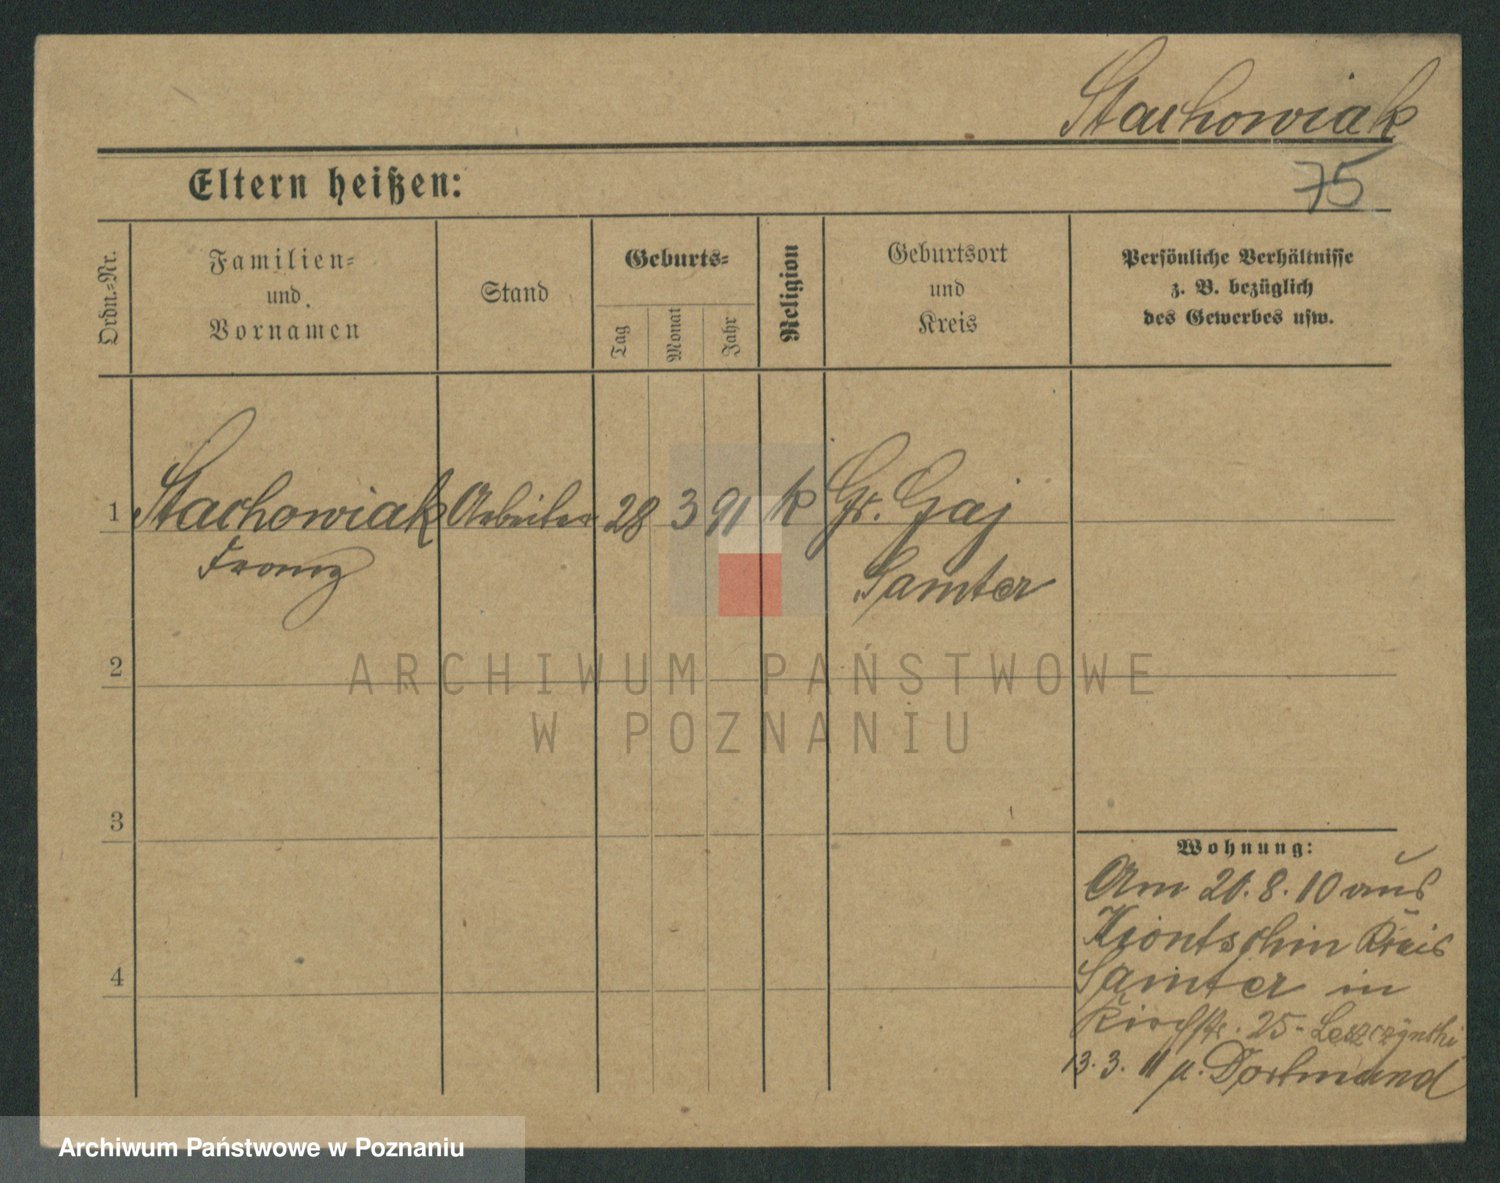 Stachowiak
75
Eltern heißen:
Ordn.-Nr.
Familien-
und
Vornamen
Stand
Geburts-
Tag
Monat
Jahr
Religion
Geburtsort
und
Kreis
Persönliche Verhältnisse
z. B. bezüglich
des Gewerbes usw.
1 Stachowiak Arbeiter 28 3 91 k Gr. Gaj
Franz
Samter
ARCHIWUM PAŃSTWOWE
W POZNANIU
2
3
4
Wohnung:
Am 20.8.10 aus
Kiontschin Kreis
Samter in
Kirchstr. 25-
13.3.11 n. Dortmund
Archiwum Państwowe w Poznaniu